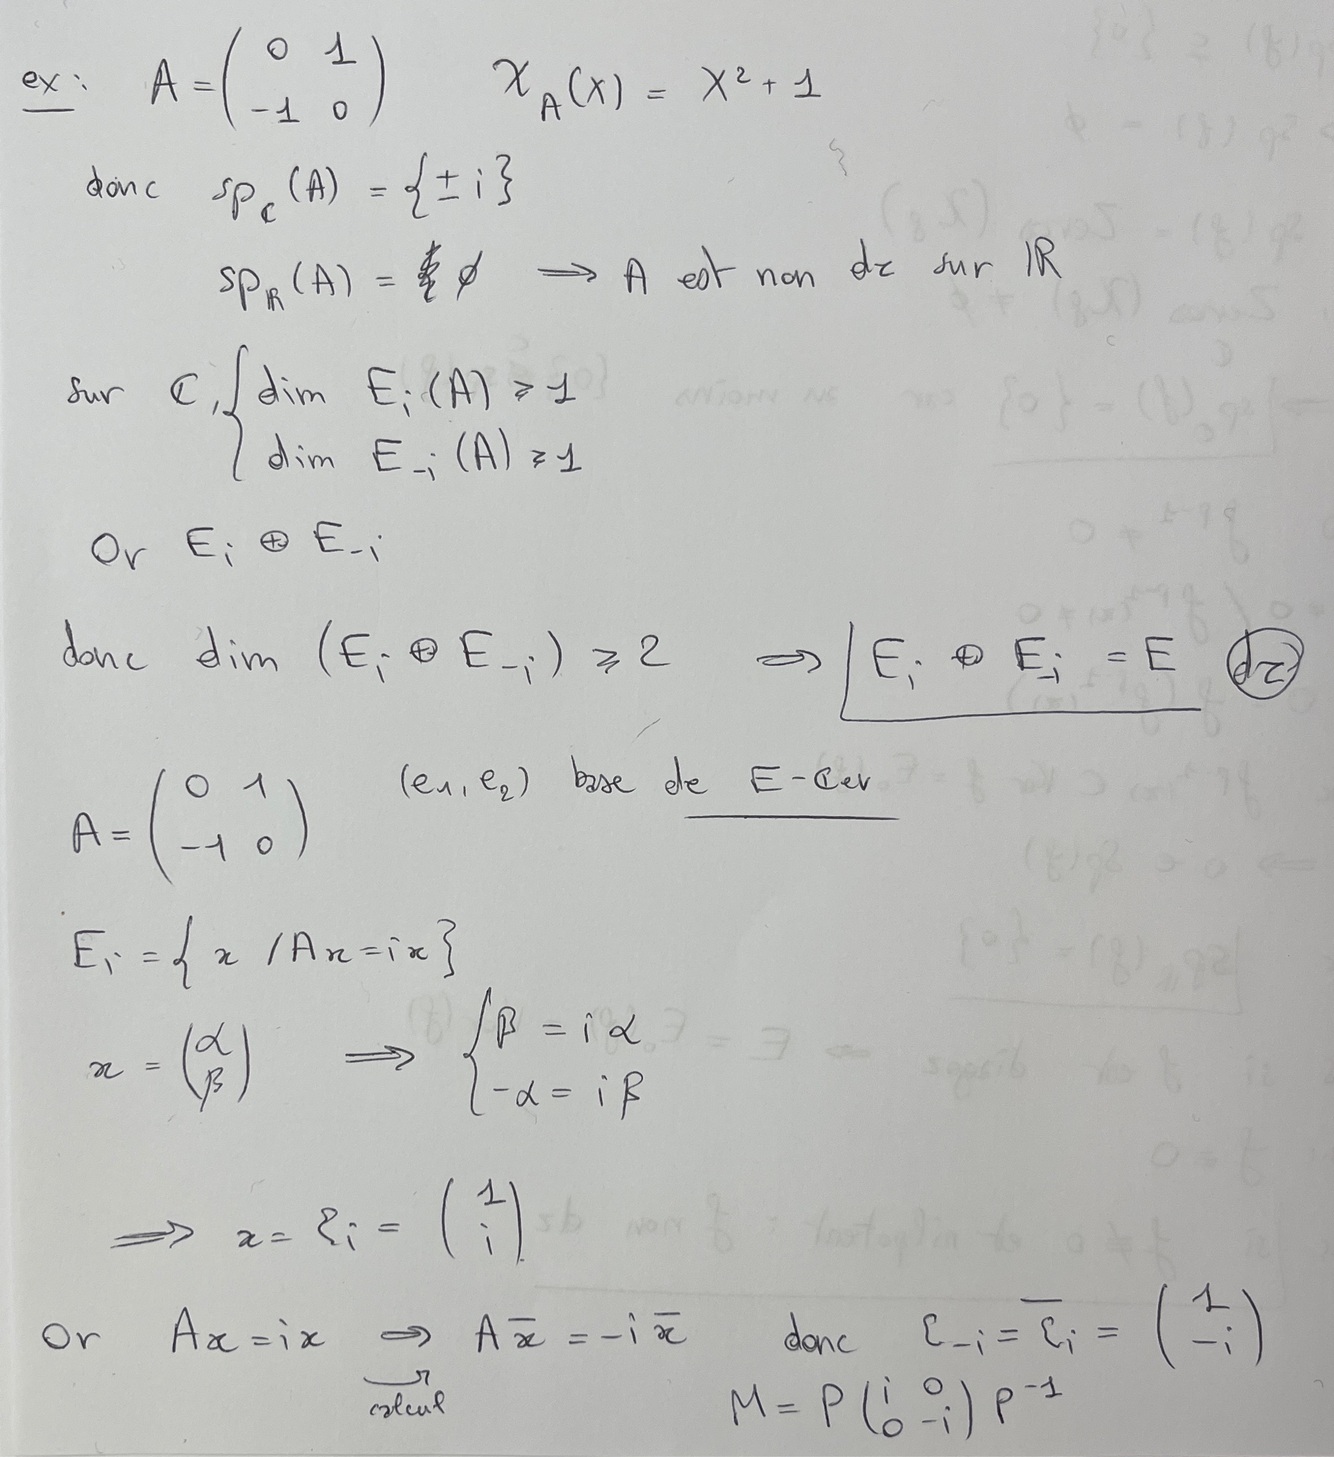 ex: A = ( 0 1 ; -1 0 ) χ_A(X) = X² + 1
donc sp_ℂ(A) = {± i}
sp_ℝ(A) = ∅ ⟹ A est non dz sur ℝ
sur ℂ, { dim E_i(A) ⩾ 1
dim E_-i(A) ⩾ 1
Or E_i ⊕ E_-i
donc dim (E_i ⊕ E_-i) ⩾ 2 ⟹ E_i ⊕ E_-i = E dz
A = ( 0 1 ; -1 0 ) (e1, e2) base de E - ℂev
E_i = { x / Ax = ix }
x = ( α ; β ) ⟹ { β = iα
-α = iβ
⟹ x = ε_i = ( 1 ; i )
Or Ax = ix ⟹ A x̄ = -i x̄ donc ε_-i = ε̄_i = ( 1 ; -i )
calcul M = P ( i 0 ; 0 -i ) P⁻¹